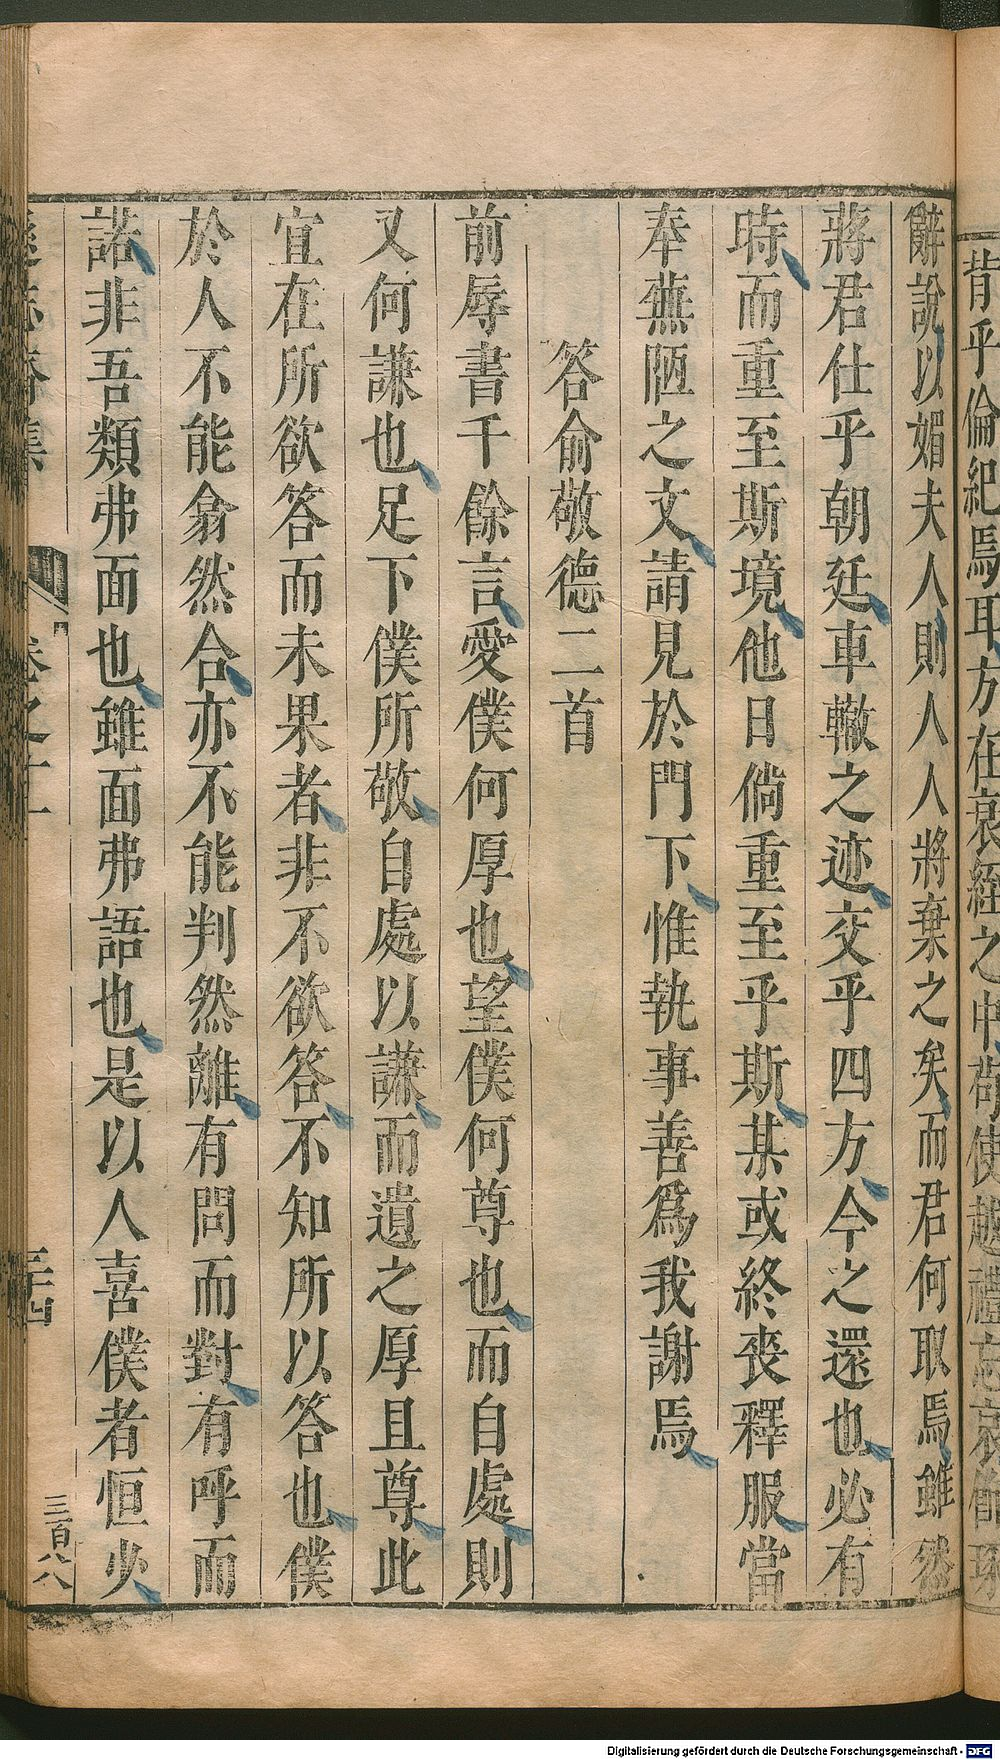 背乎倫紀焉耶方在哀絰之中苟使越禮忘哀
辭說以媚夫人則人人將棄之矣而君何取焉雖然
蔣君仕乎朝廷車轍之迹交乎四方今之還也必有
時而重至斯境他日倘重至乎斯某或終喪釋服當
奉蕪陋之文請見於門下惟執事善為我謝焉
答俞敬德二首
前辱書千餘言愛僕何厚也望僕何尊也而自處則
又何謙也足下僕所敬自處以謙而遺之厚且尊此
宜在所欲答而未果者非不欲答不知所以答也僕
於人不能翕然合亦不能判然離有問而對有呼而
諾非吾類弗面也雖面弗語也是以人喜僕者恒少
遜志齋集
卷之十一
三十四
三百八八
Digitalisierung gefördert durch die Deutsche Forschungsgemeinschaft - DFG